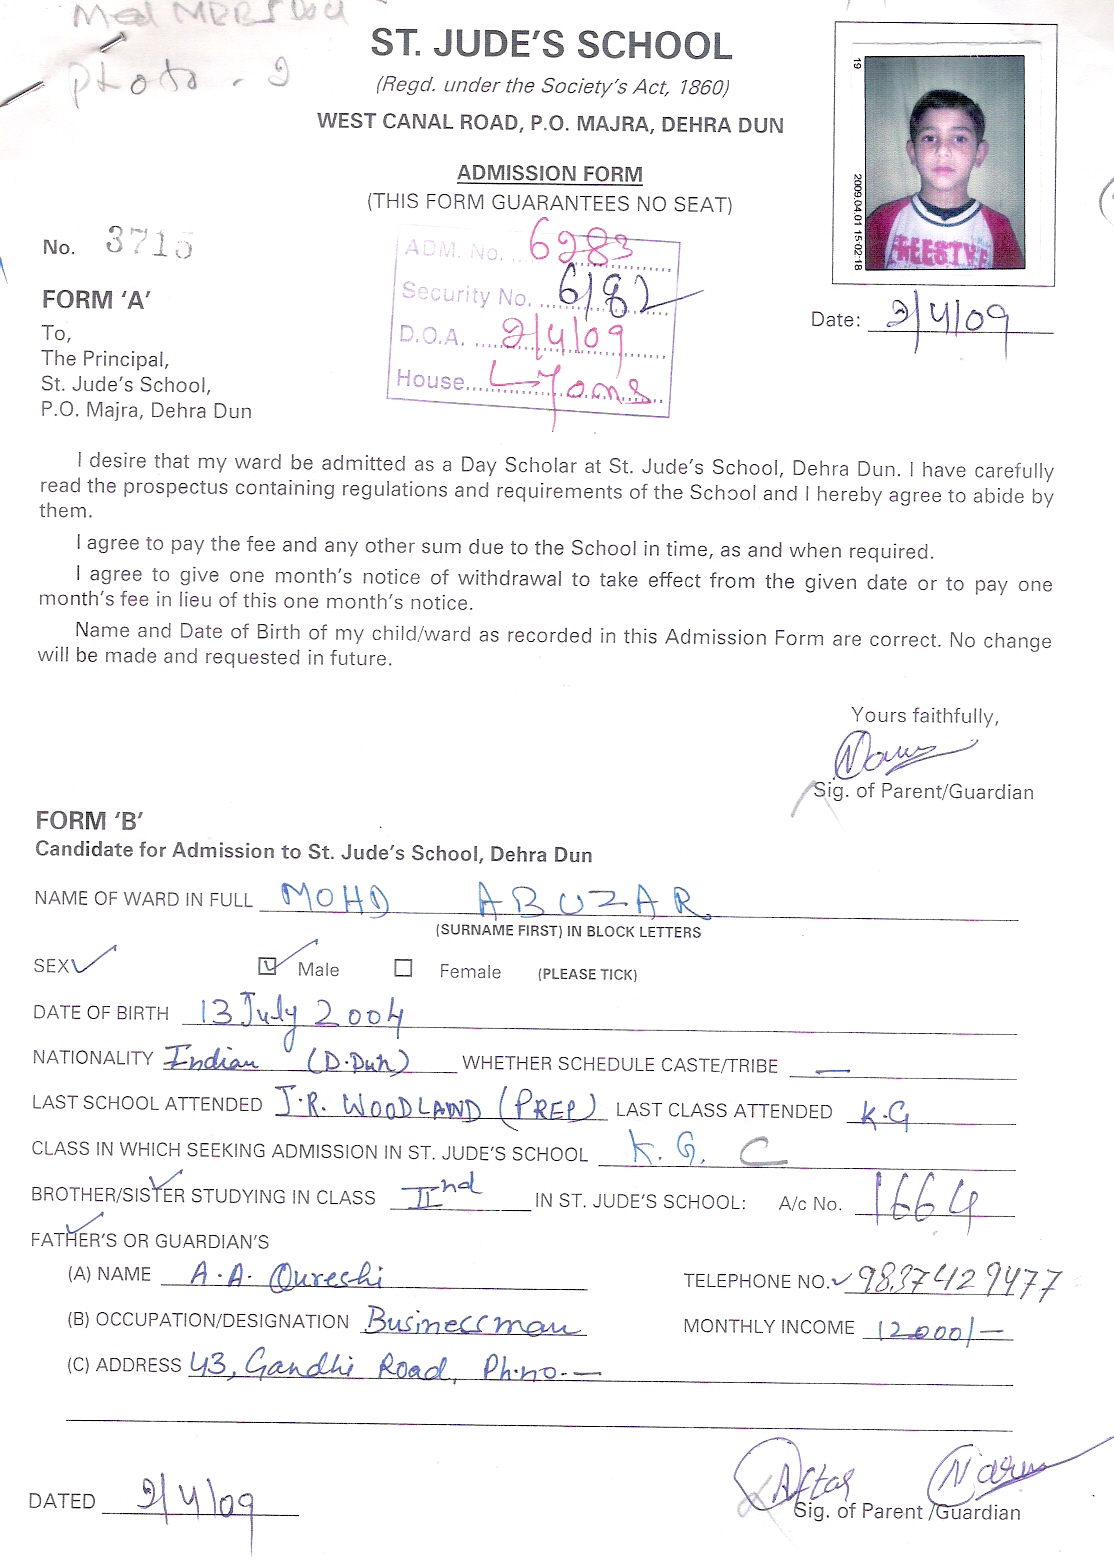 Photo - 2
ST. JUDE'S SCHOOL
(Regd. under the Society's Act, 1860)
WEST CANAL ROAD, P.O. MAJRA, DEHRA DUN
ADMISSION FORM
(THIS FORM GUARANTEES NO SEAT)
19
2009.04.01 15:02:18
FREESTYE
No. 3715
ADM. No. 6283
Security No. 6182
D.O.A. 2/4/09
House Lyons
Date: 2/4/09
FORM 'A'
To,
The Principal,
St. Jude's School,
P.O. Majra, Dehra Dun
I desire that my ward be admitted as a Day Scholar at St. Jude's School, Dehra Dun. I have carefully
read the prospectus containing regulations and requirements of the School and I hereby agree to abide by
them.
I agree to pay the fee and any other sum due to the School in time, as and when required.
I agree to give one month's notice of withdrawal to take effect from the given date or to pay one
month's fee in lieu of this one month's notice.
Name and Date of Birth of my child/ward as recorded in this Admission Form are correct. No change
will be made and requested in future.
Yours faithfully,
Sig. of Parent/Guardian
FORM 'B'
Candidate for Admission to St. Jude's School, Dehra Dun
NAME OF WARD IN FULL MOHD ABUZAR
(SURNAME FIRST) IN BLOCK LETTERS
SEX Male Female (PLEASE TICK)
DATE OF BIRTH 13 July 2004
NATIONALITY Indian (D.Dun) WHETHER SCHEDULE CASTE/TRIBE —
LAST SCHOOL ATTENDED J.R. WOODLAND (PREP) LAST CLASS ATTENDED K.G
CLASS IN WHICH SEEKING ADMISSION IN ST. JUDE'S SCHOOL K.G. C
BROTHER/SISTER STUDYING IN CLASS IInd IN ST. JUDE'S SCHOOL: A/c No. 1664
FATHER'S OR GUARDIAN'S
(A) NAME A.A. Qureshi TELEPHONE NO. 9837429477
(B) OCCUPATION/DESIGNATION Businessman MONTHLY INCOME 12000/-
(C) ADDRESS 43, Gandhi Road, Ph.no. —
DATED 2/4/09
Aftab
Sig. of Parent /Guardian